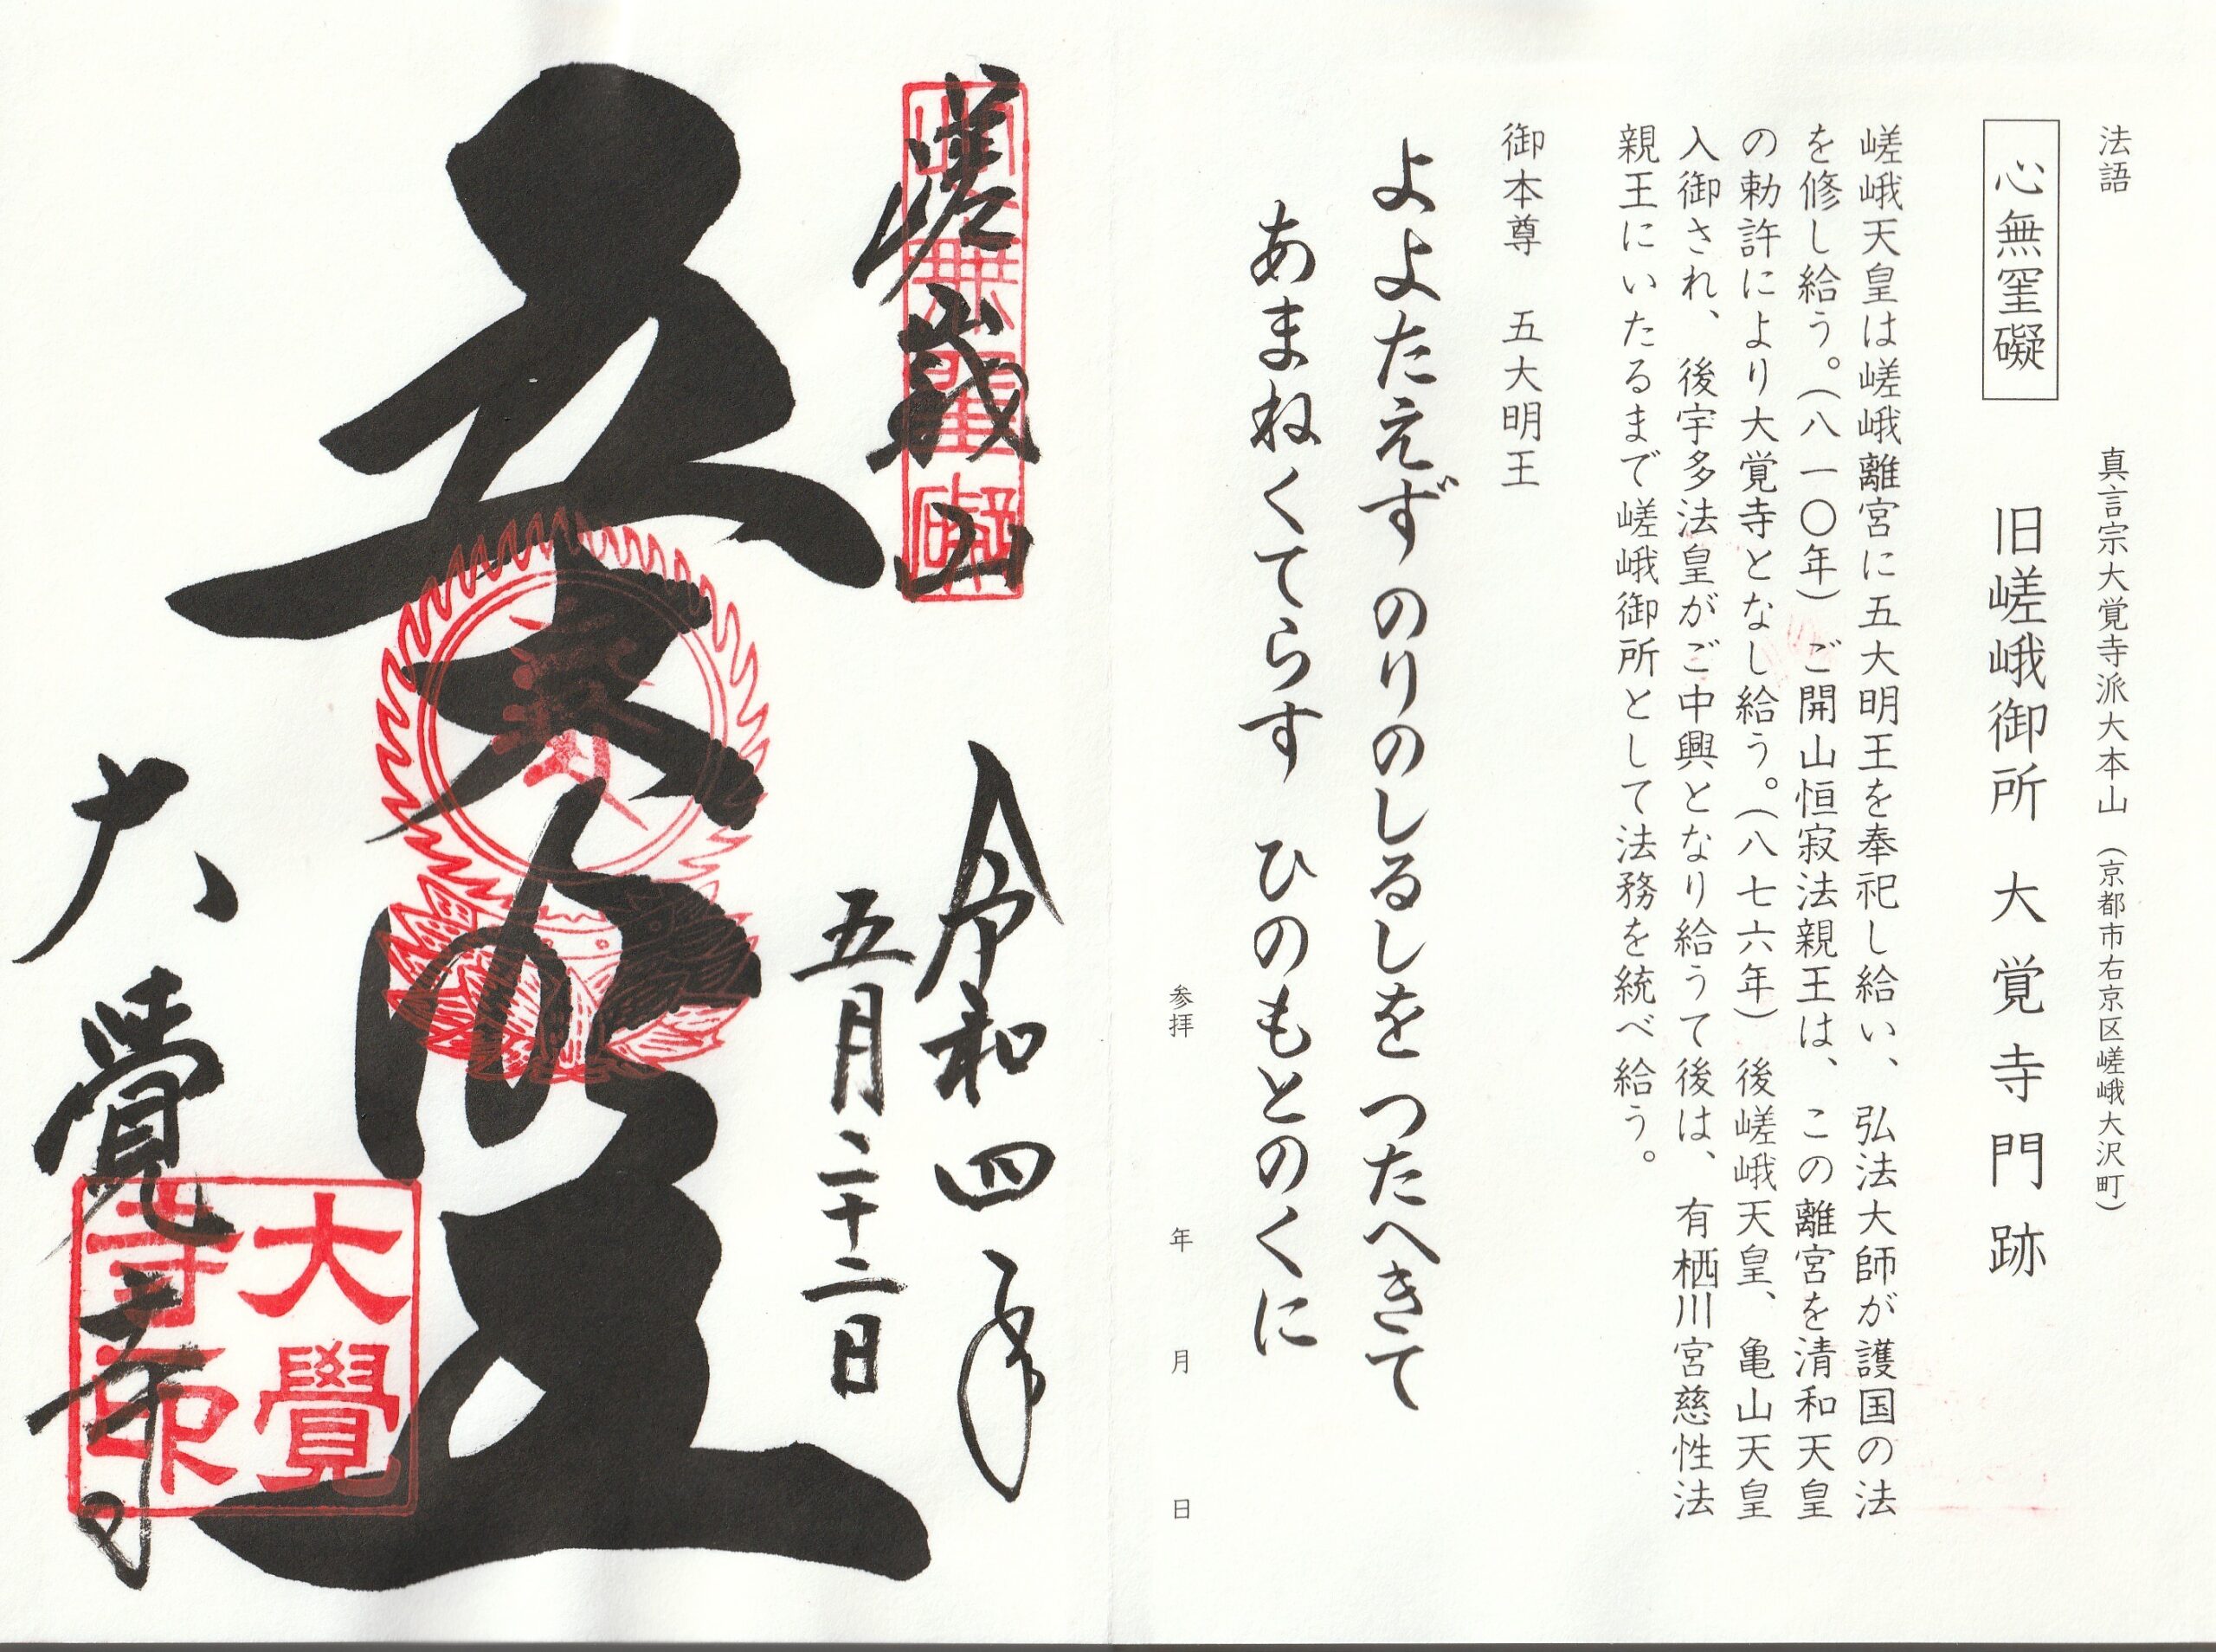 法語　真言宗大覚寺派大本山（京都市右京区嵯峨大沢町）
心無罣礙　旧嵯峨御所　大覚寺門跡
嵯峨天皇は嵯峨離宮に五大明王を奉祀し給い、弘法大師が護国の法
を修し給う。（八一〇年）ご開山恒寂法親王は、この離宮を清和天皇
の勅許により大覚寺となし給う。（八七六年）後嵯峨天皇、亀山天皇
入御され、後宇多法皇がご中興となり給うて後は、有栖川宮慈性法
親王にいたるまで嵯峨御所として法務を統べ給う。
御本尊　五大明王
よよたえず のりのしるしを つたへきて
あまねくてらす ひのもとのくに
参拝　年　月　日
嵯峨山
心無罣礙
令和四年
五月二十二日
五大明王
大覺寺
大覺
寺印